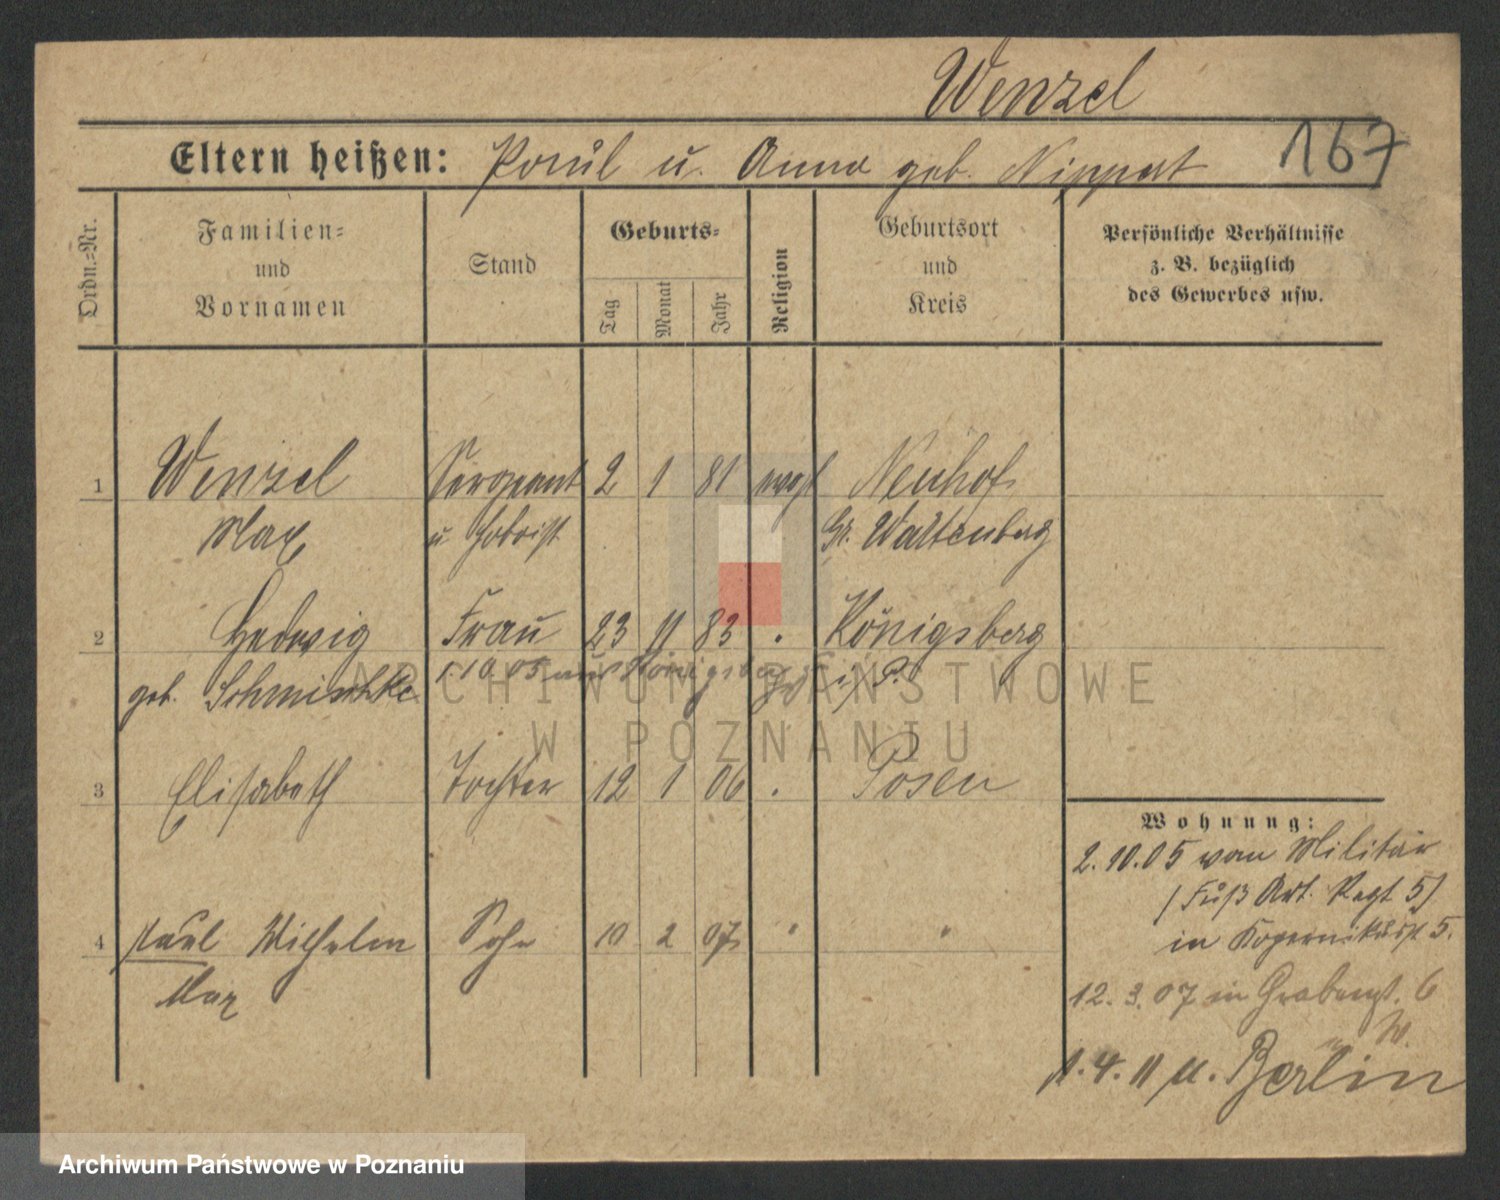 Wenzel
Eltern heißen: Paul u. Anna geb. Nippert
167
Ordn.-Nr.
Familien-
und
Vornamen
Stand
Geburts-
Tag
Monat
Jahr
Religion
Geburtsort
und
Kreis
Persönliche Verhältnisse
z. B. bezüglich
des Gewerbes usw.
1 Wenzel Sergeant 2 1 81 evgl Neuhof
Max u Hoboist Gr. Wartenberg
2 Hedwig Frau 23 11 83 " Königsberg
geb. Schmischke 1.10.05 aus Königsberg i/P.
3 Elisabeth Tochter 12 1 06 " Posen
4 Paul Wilhelm Sohn 10 2 07 " "
Max
Wohnung:
2.10.05 vom Militär
(Fuß Art. Regt 5)
in Kopernikusst 5.
12.3.07 in Grabengt. 6
W.
1.4.11 n. Berlin
ARCHIWUM PAŃSTWOWE
W POZNANIU
Archiwum Państwowe w Poznaniu